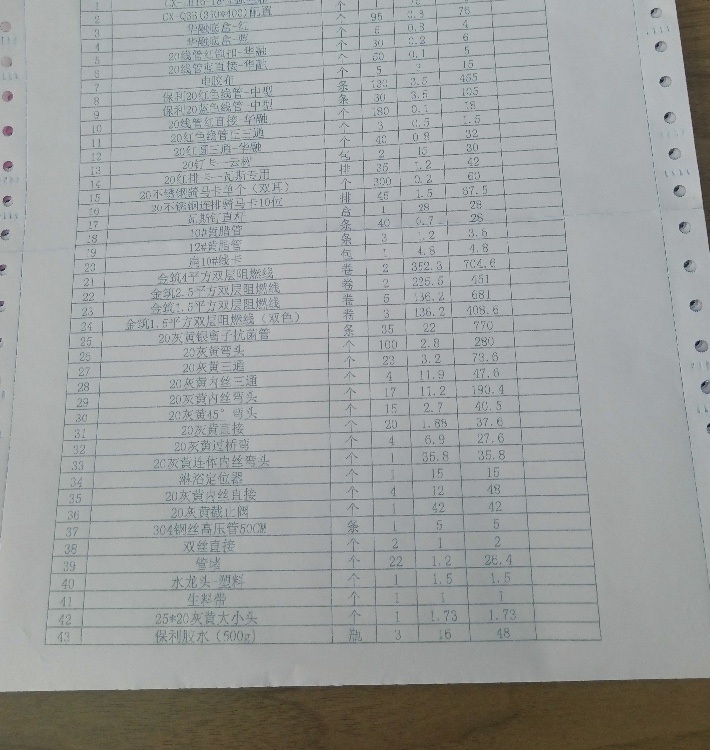 2 CX-Q35(350*400)配置
3 华融底盒-红 个 95 0.8 76
4 华融底盒-蓝 个
5 20线管红锁扣-华融 个 30 0.2 6
6 20线管蓝直接-华融 个 50 0.1 5
7 电胶布 个 5 3 15
8 保利20红色线管-中型 条 130 3.5 455
9 保利20蓝色线管-中型 条 30 3.5 105
10 20线管红直接-华融 个 180 0.1 18
11 20红色线管圧三通 个 3 0.5 1.5
12 20红蓝三通-华融 个 40 0.8 32
13 包 2 15 30
14 排 35 1.2 42
15 20不锈钢骑马卡单个（双耳） 个 300 0.2 60
16 20不锈钢连排骑马卡10位 排 45 1.5 67.5
17 台 1 28 28
18 10#黄腊管 条 40 0.7 28
19 12#黄腊管 条 3 1.2 3.6
20 10#线卡 包 1 4.8 4.8
21 金筑4平方双层阻燃线 卷 2 352.3 704.6
22 金筑2.5平方双层阻燃线 卷 2 225.5 451
23 金筑1.5平方双层阻燃线 卷 5 136.2 681
24 金筑1.5平方双层阻燃线（双色） 卷 3 136.2 408.6
25 20灰黄银离子抗菌管 条 35 22 770
26 20灰黄弯头 个 100 2.8 280
27 20灰黄三通 个 23 3.2 73.6
28 20灰黄内丝三通 个 4 11.9 47.6
29 20灰黄内丝弯头 个 17 11.2 190.4
30 20灰黄45°弯头 个 15 2.7 40.5
31 20灰黄直接 个 20 1.88 37.6
32 20灰黄过桥弯 个 4 6.9 27.6
33 20灰黄连体内丝弯头 个 1 35.8 35.8
34 淋浴定位器 个 1 15 15
35 20灰黄内丝直接 个 4 12 48
36 20灰黄截止阀 个 1 42 42
37 304钢丝高压管50CM 条 1 5 5
38 双丝直接 个 2 1 2
39 管堵 个 22 1.2 26.4
40 水龙头-塑料 个 1 1.5 1.5
41 生料带 个 1 1 1
42 25*20灰黄大小头 个 1 1.73 1.73
43 保利胶水（500g） 瓶 3 16 48